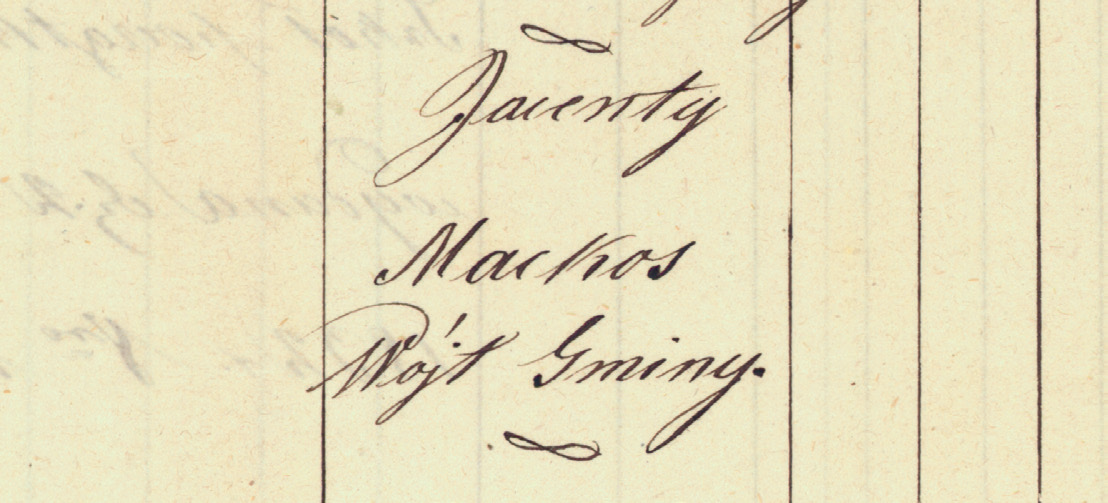 Jacenty
Mackos
Wójt Gminy.